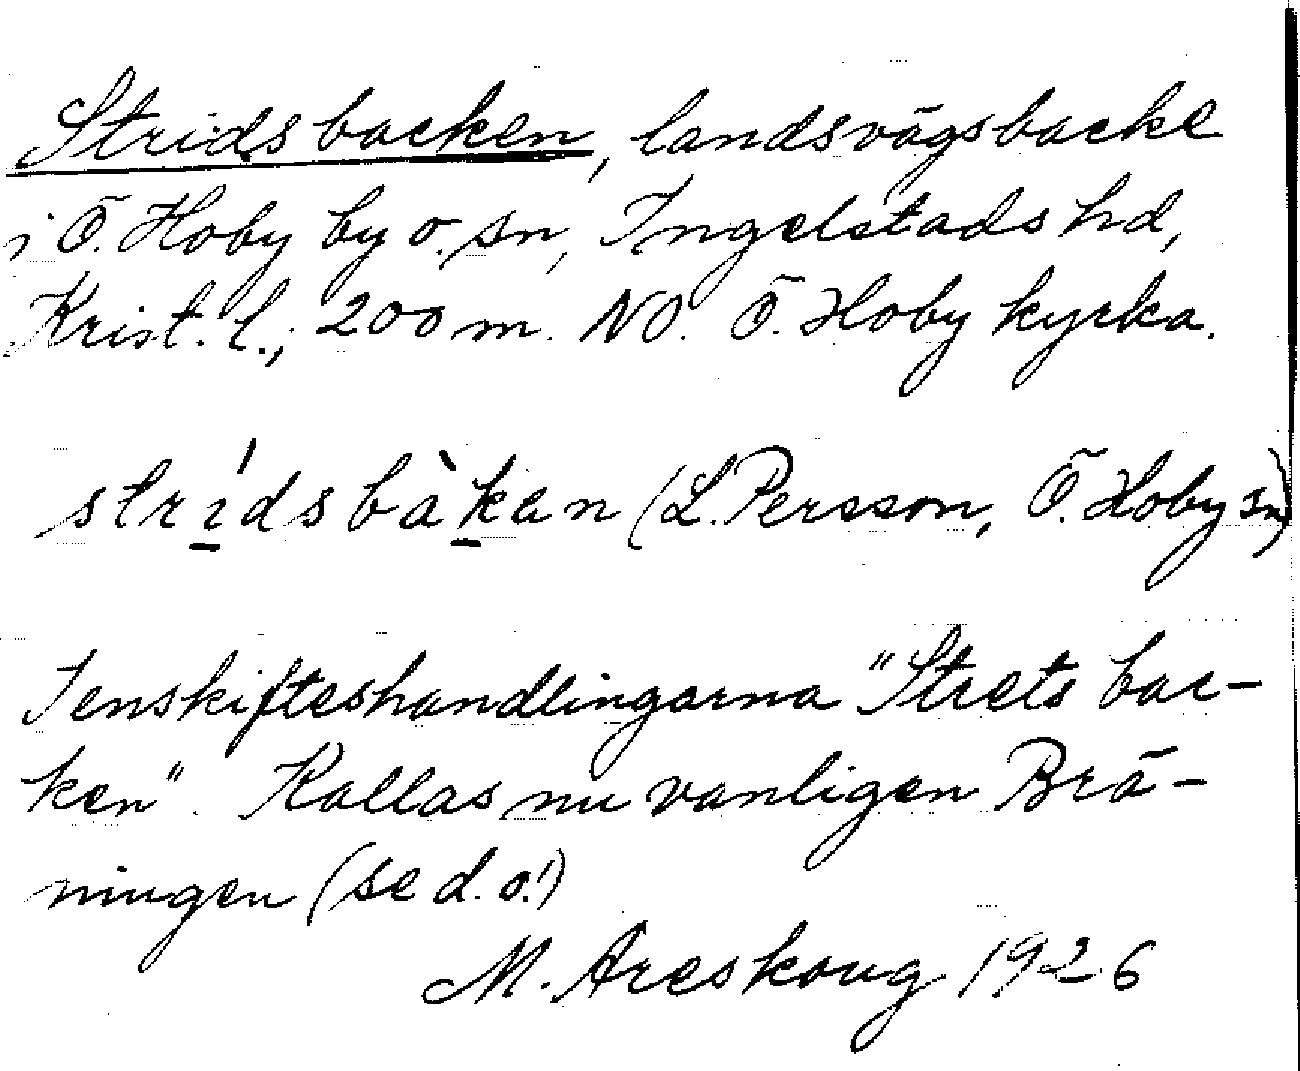 Stridsbacken, landsvägsbacke
i Ö. Hoby by o. sn, Ingelstads hd,
Krist. l., 200 m. NO. Ö. Hoby kyrka.
strı̱́dsbàḵan (L. Persson, Ö. Hoby sn)
I enskifteshandlingarna "Strets bac-
ken". Kallas nu vanligen Brä-
ningen (se d. o.!)
M. Areskoug 1926